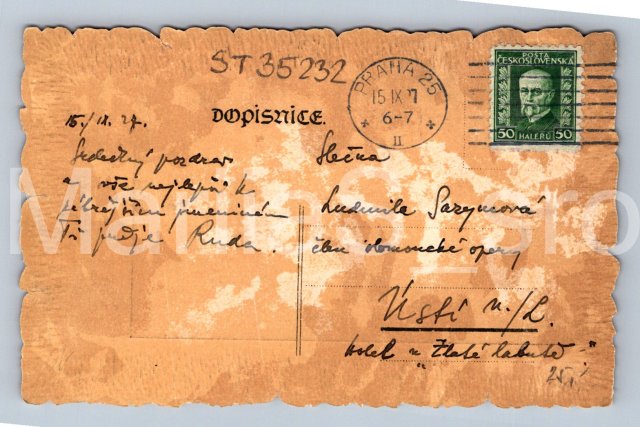 ST 35232
PRAHA 25
15 IX 27
6-7
II
POŠTA
ČESKOSLOVENSKÁ
50 HALÉŘŮ 50
DOPISNICE.
15./IX. 27.
Srdečný pozdrav
a vše nejlepší k
zítřejším jmeninám
Ti přeje Ruda.
Slečna
Ludmila
člen olomoucké opery
Ústí n./L.
hotel „Zlatá labuť"